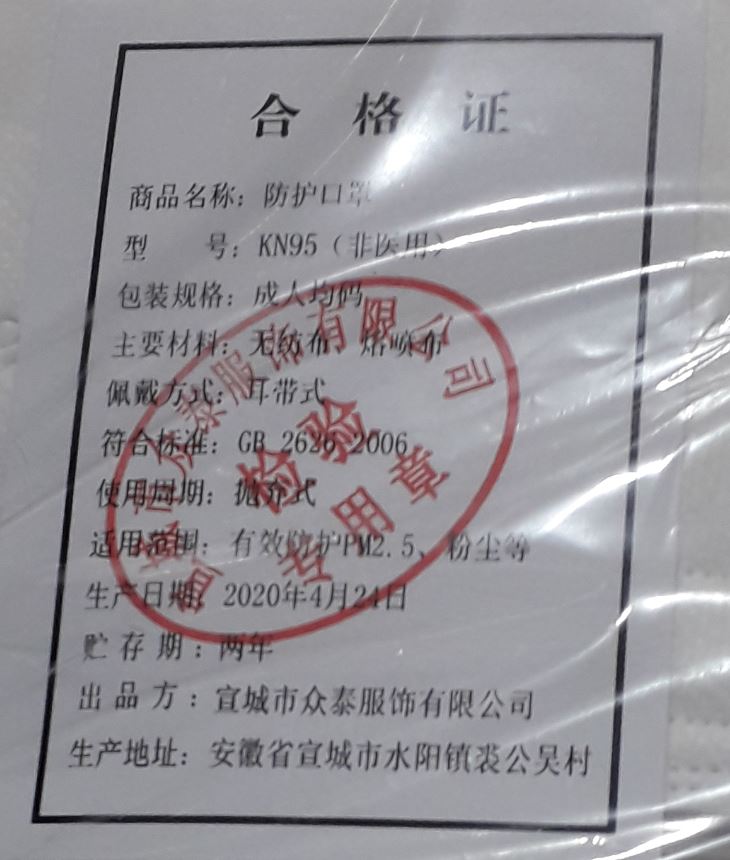 合格证
商品名称：防护口罩
型　　号：KN95（非医用）
包装规格：成人均码
主要材料：无纺布、熔喷布
佩戴方式：耳带式
符合标准：GB 2626-2006
使用周期：抛弃式
适用范围：有效防护PM2.5、粉尘等
生产日期：2020年4月24日
贮 存 期：两年
出 品 方：宣城市众泰服饰有限公司
生产地址：安徽省宣城市水阳镇裘公吴村
宣城市众泰服饰有限公司
检验
专用章